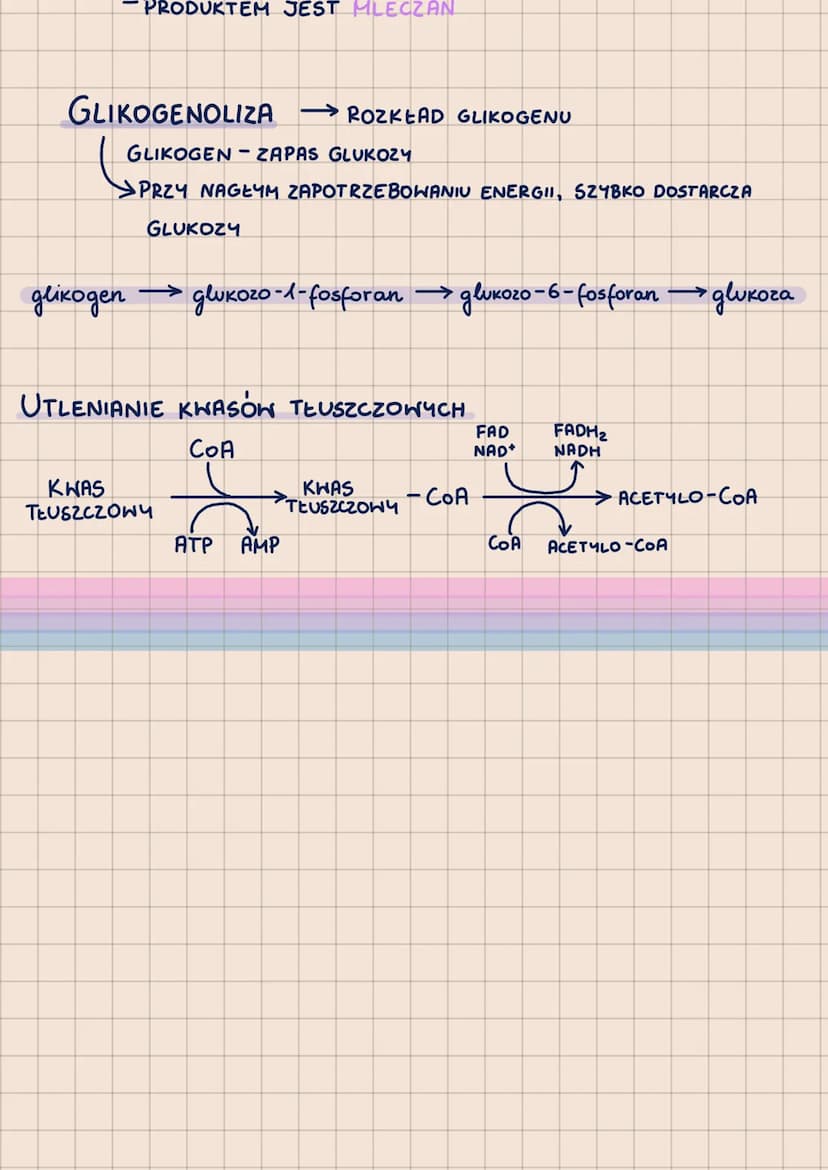 - PRODUKTEM JEST MLECZAN
GLIKOGENOLIZA → ROZKŁAD GLIKOGENU
GLIKOGEN - ZAPAS GLUKOZY
→ PRZY NAGŁYM ZAPOTRZEBOWANIU ENERGII, SZYBKO DOSTARCZA
GLUKOZY
glikogen → glukozo-1-fosforan → glukozo-6-fosforan → glukoza
UTLENIANIE KWASÓW TŁUSZCZOWYCH
CoA
FAD FADH₂
NAD⁺ NADH
KWAS TŁUSZCZOWY → KWAS TŁUSZCZOWY - CoA → ACETYLO-CoA
ATP AMP CoA ACETYLO-CoA